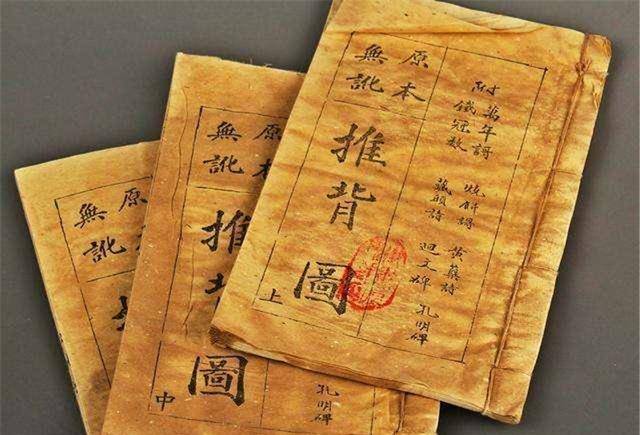 附
萬年謌
鐵冠數
燒餅謌
藏頭詩
黄蘗詩
迴文碑
孔明碑
原本
無訛
推背圖
上
原本
無訛
推背圖
中
孔明碑
原本
無訛